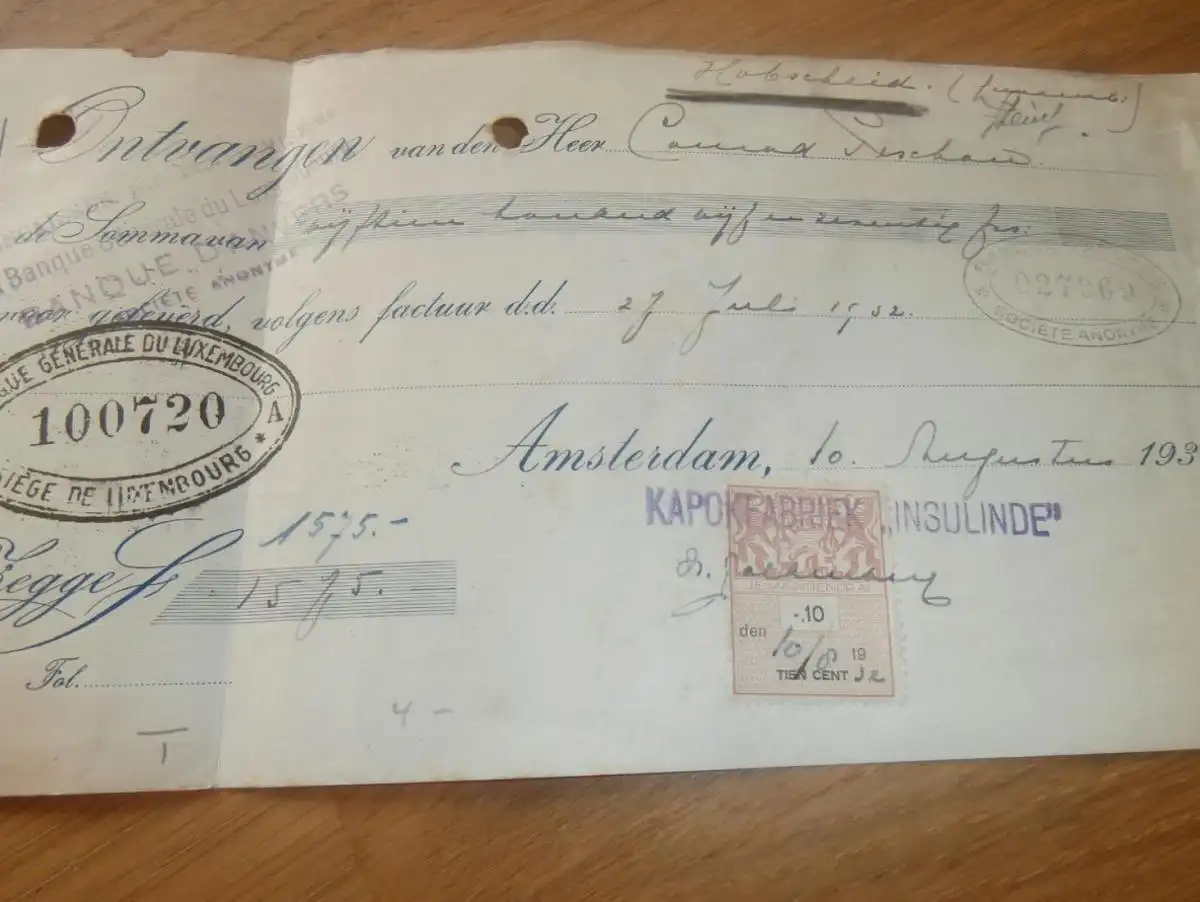 Hobscheid. (
Ontvangen van den Heer Conrad
de Somma van vijftien honderd vijf en zeventig frs.
geleverd, volgens factuur d.d. 27 Juli 1932.
Banque Générale du
BANQUE D'ANVERS
SOCIÉTÉ ANONYME
027969
SOCIÉTÉ ANONYME
GÉNÉRALE DU LUXEMBOURG
100720 A
SIÈGE DE LUXEMBOURG *
Amsterdam, 10. Augustus 193
KAPOKFABRIEK „INSULINDE"
1575.-
Zegge f 1575.-
-.10
den 10/8 19 32
TIEN CENT
Fol.
4 -
1